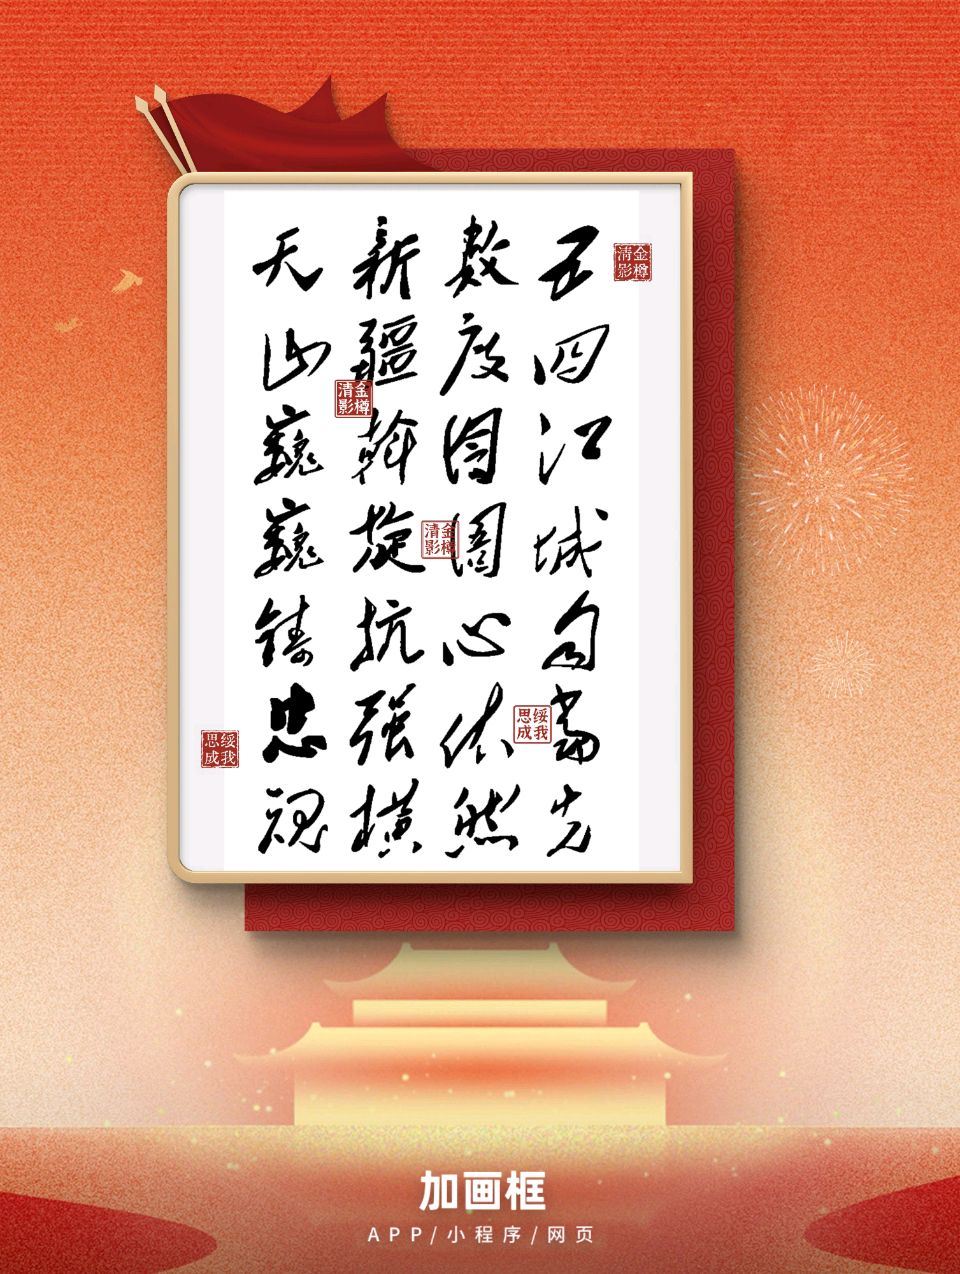 金樽
清影
五四江城身當先
数度囹圄心依然
新疆斡旋抗强横
天山巍巍铸忠魂
金樽
清影
金樽
清影
绥我
思成
绥我
思成
加画框
APP/小程序/网页